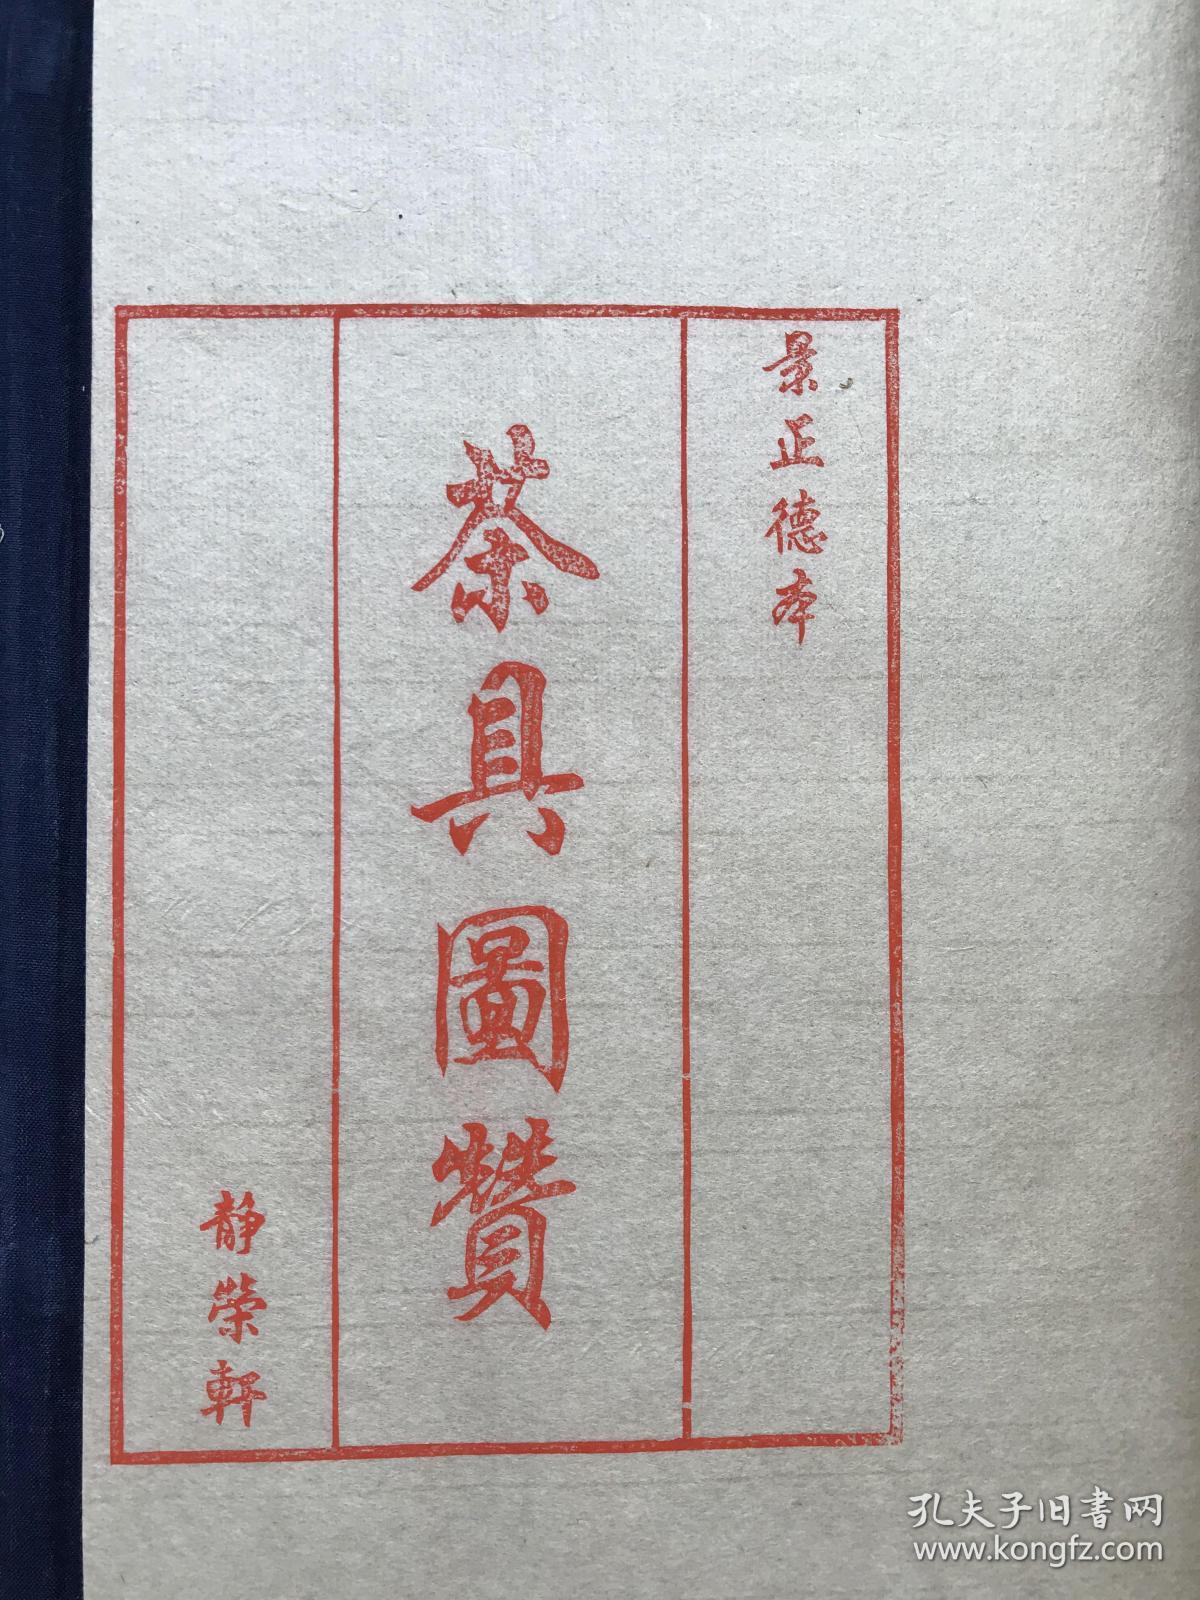 景正德本
茶具圖贊
靜榮軒
孔夫子旧書网
www.kongfz.com